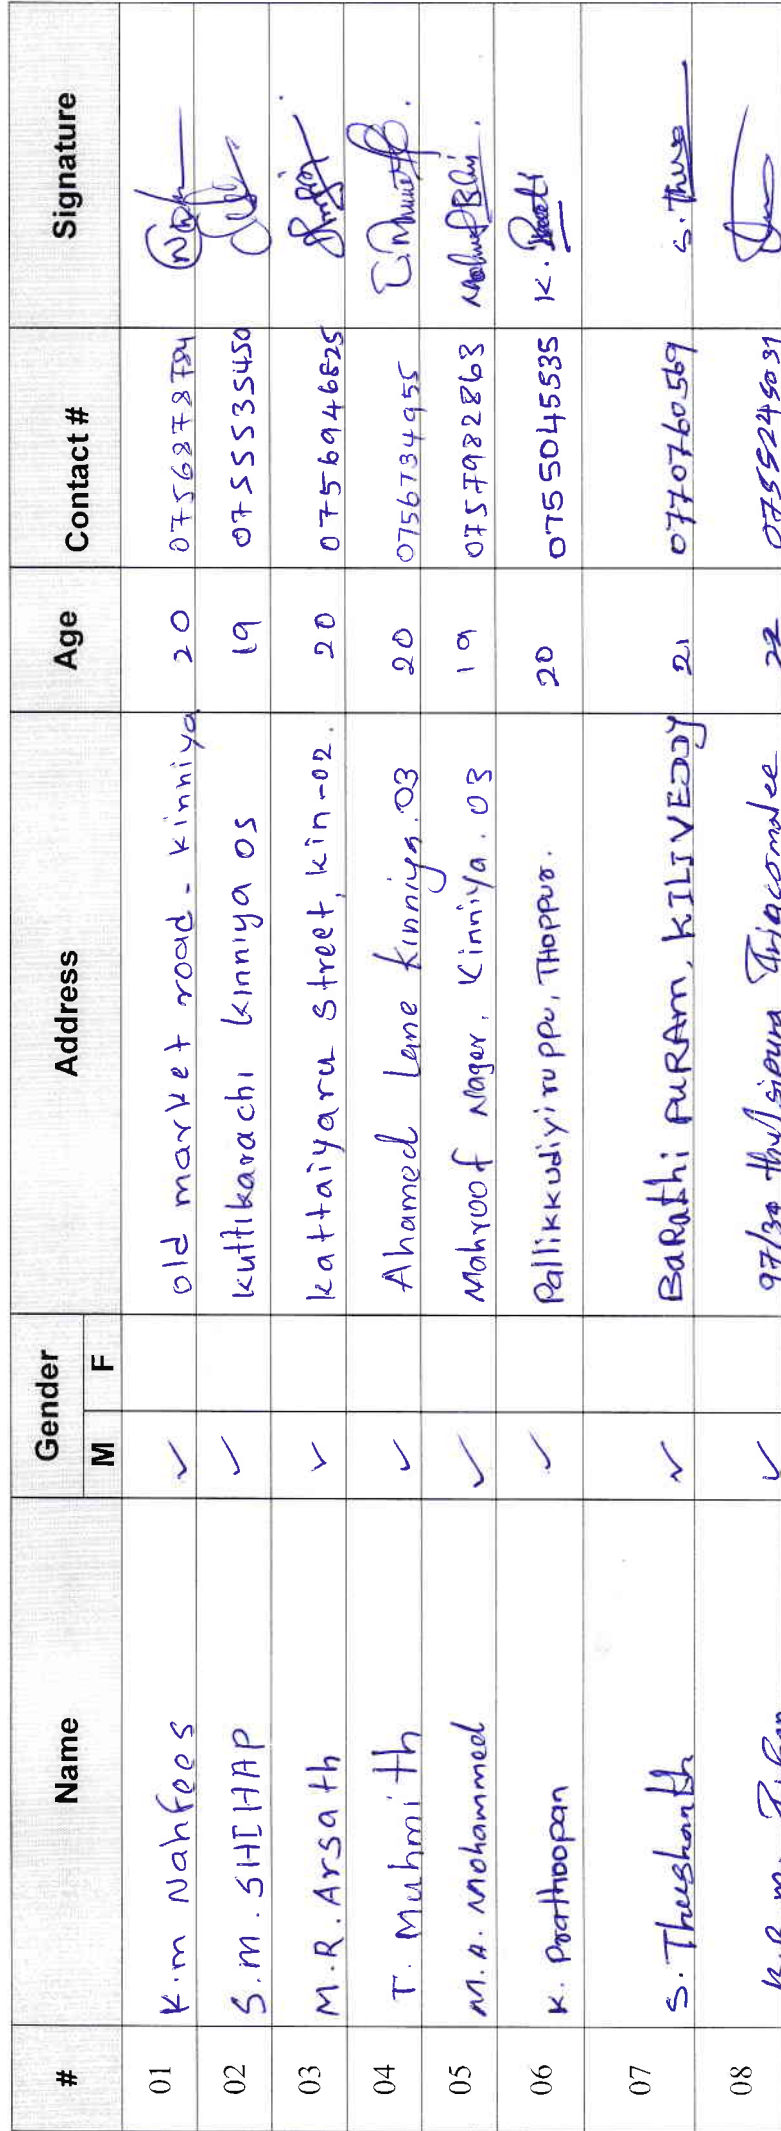 # Name Gender Address Age Contact # Signature
M F
01 K.m Nahfees ✓ old market road - kinniya 20 0756878784
02 S.m. SHIHAP ✓ kuttikarachi kinniya 05 19 0755535450
03 M.R. Arsath ✓ kattaiyaru street, kin-02. 20 0756946825
04 T. Muhmith ✓ Ahamed Lane kinniya.03 20 0756734955
05 M.A. Mohammed ✓ Mahroof Nagar, Kinniya. 03 19 0757982863
06 K. Prathoopan ✓ Pallikkudiyiruppu, THoppur. 20 0755045535 K.
07 S. Thushanth ✓ BaRathi PURAm, KILIVEDDY 21 0770760569 S. Thusa
08 K.R.m. ✓ 97/30 thulsipura Trincomalee 22 0755245031